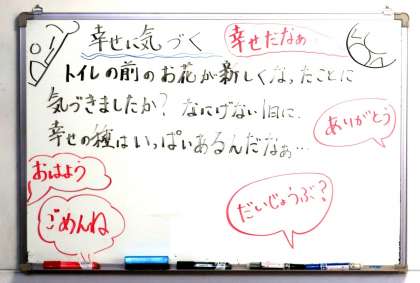 幸せに気づく
幸せだなぁ…
トイレの前のお花が新しくなったことに
気づきましたか?なにげない1日に、
幸せの種はいっぱいあるんだなぁ…
ありがとう
おはよう
ごめんね
だいじょうぶ?